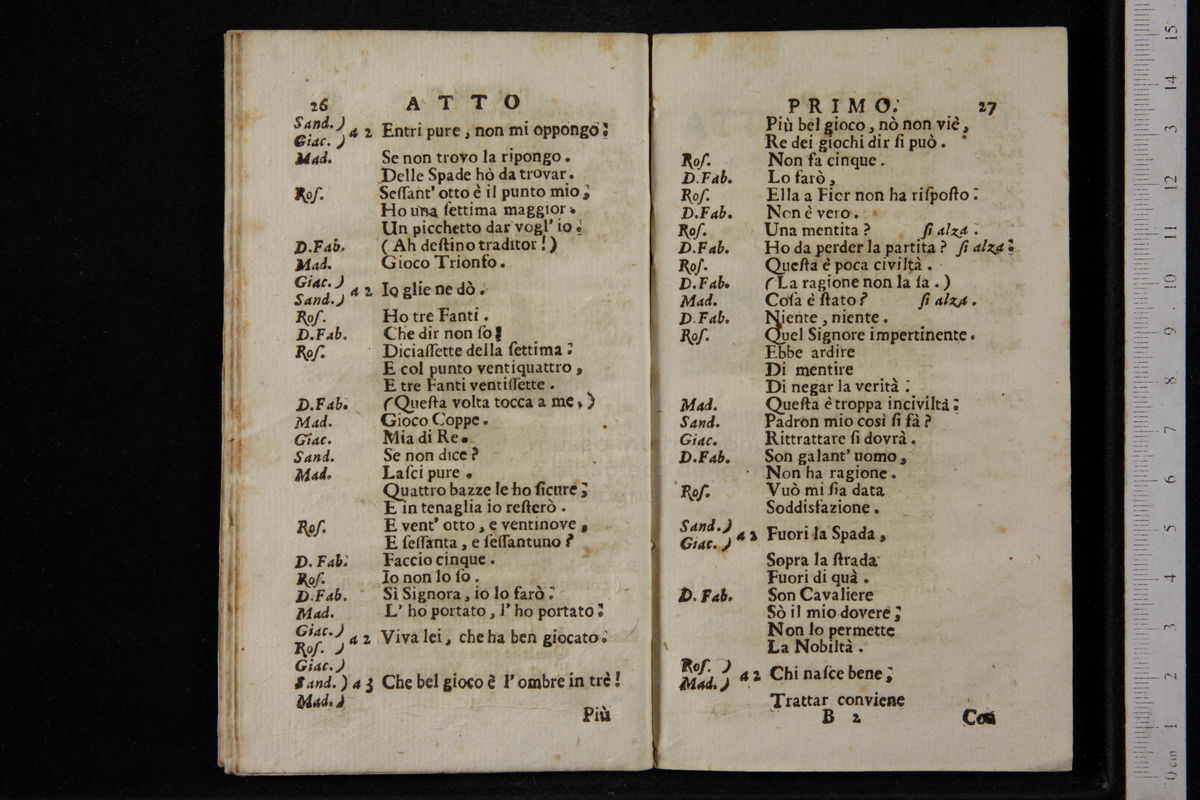 26 ATTO
Sand. )
Giac. ) a 2 Entri pure, non mi oppongo:
Mad. Se non trovo la ripongo.
Delle Spade hò da trovar.
Roſ. Seſſant' otto è il punto mio;
Ho una ſettima maggior.
Un picchetto dar vogl' io.
D.Fab. (Ah deſtino traditor!)
Mad. Gioco Trionfo.
Giac. )
Sand. ) a 2 Io glie ne dò.
Roſ. Ho tre Fanti.
D.Fab. Che dir non ſo!
Roſ. Diciaſſette della ſettima:
E col punto ventiquattro,
E tre Fanti ventiſſette.
D.Fab. (Queſta volta tocca a me.)
Mad. Gioco Coppe.
Giac. Mia di Re.
Sand. Se non dice?
Mad. Laſci pure.
Quattro bazze le ho ſicure;
E in tenaglia io reſterò.
Roſ. E vent' otto, e ventinove,
E ſeſſanta, e ſeſſantuno?
D. Fab. Faccio cinque.
Roſ. Io non lo ſo.
D.Fab. Sì Signora, io lo farò:
Mad. L' ho portato, l' ho portato:
Giac. )
Roſ. ) a 2 Viva lei, che ha ben giocato:
Giac. )
Sand. ) a 3 Che bel gioco è l' ombre in trè!
Mad. )
Più
PRIMO. 27
Più bel gioco, nò non viè,
Re dei giochi dir ſi può.
Roſ. Non fa cinque.
D.Fab. Lo farò,
Roſ. Ella a Fier non ha riſpoſto:
D.Fab. Non è vero.
Roſ. Una mentita? ſi alza.
D.Fab. Ho da perder la partita? ſi alza:
Roſ. Queſta è poca civiltà.
D.Fab. (La ragione non la ſa.)
Mad. Coſa è ſtato? ſi alza.
D.Fab. Niente, niente.
Roſ. Quel Signore impertinente.
Ebbe ardire
Di mentire
Di negar la verità:
Mad. Queſta è troppa inciviltà:
Sand. Padron mio così ſi fà?
Giac. Rittrattare ſi dovrà.
D.Fab. Son galant' uomo,
Non ha ragione.
Roſ. Vuò mi ſia data
Soddisfazione.
Sand. )
Giac. ) a 2 Fuori la Spada,
Sopra la ſtrada
Fuori di quà.
D. Fab. Son Cavaliere
Sò il mio dovere;
Non lo permette
La Nobiltà.
Roſ. )
Mad. ) a 2 Chi naſce bene;
Trattar conviene
B 2 Con
0 cm 1 2 3 4 5 6 7 8 9 10 11 12 13 14 15